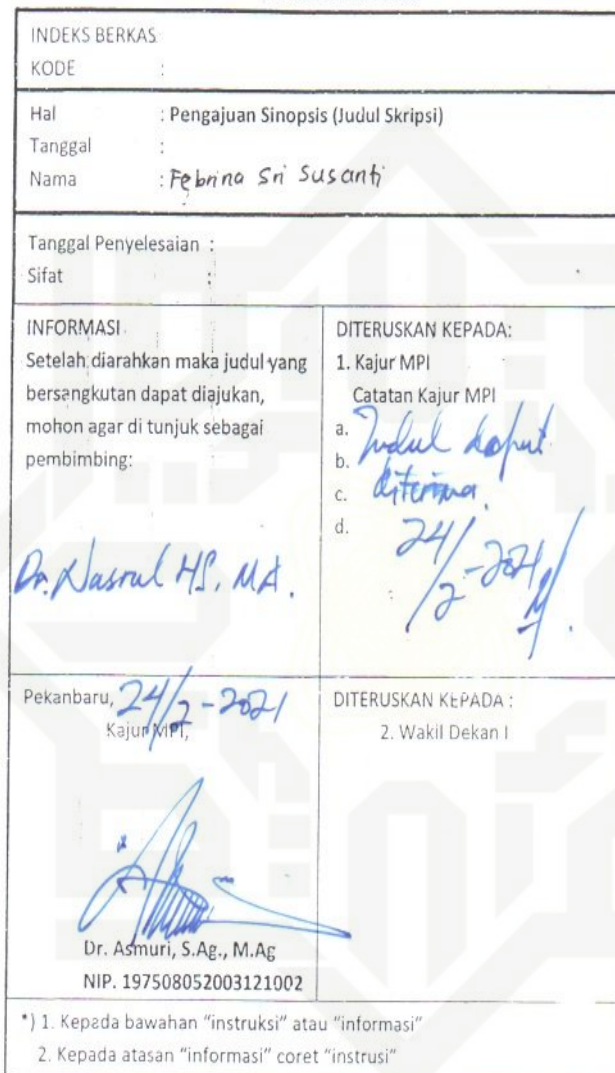 INDEKS BERKAS
KODE :
Hal : Pengajuan Sinopsis (Judul Skripsi)
Tanggal :
Nama : Febrina Sri Susanti
Tanggal Penyelesaian :
Sifat :
INFORMASI
Setelah diarahkan maka judul yang
bersangkutan dapat diajukan,
mohon agar di tunjuk sebagai
pembimbing:
Dr. Nasrul HS, MA.
DITERUSKAN KEPADA:
1. Kajur MPI
Catatan Kajur MPI
a. Judul dapat
b.
c. diterima.
d. 24/2-2021
Pekanbaru, 24/2-2021
Kajur MPI,
Dr. Asmuri, S.Ag., M.Ag
NIP. 197508052003121002
DITERUSKAN KEPADA :
2. Wakil Dekan I
*) 1. Kepada bawahan "instruksi" atau "informasi"
2. Kepada atasan "informasi" coret "instrusi"